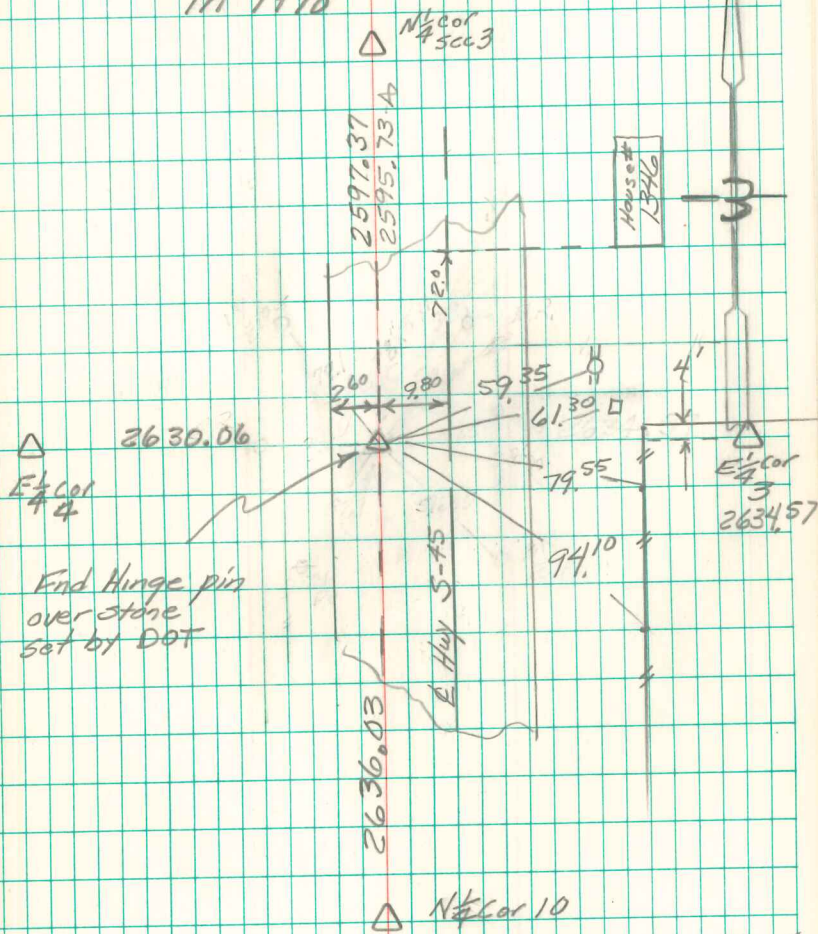 N 1/4 cor
sec 3
2597.37
2595.73
House #
1346
72.0
2.60
9.80
59.35
61.30
4'
79.55
94.10
2630.06
E 1/4 cor
4
E 1/4 cor
3
2634.57
Fnd Hinge pin
over stone
set by DOT
℄ Hwy S-45
2636.03
N 1/4 cor 10